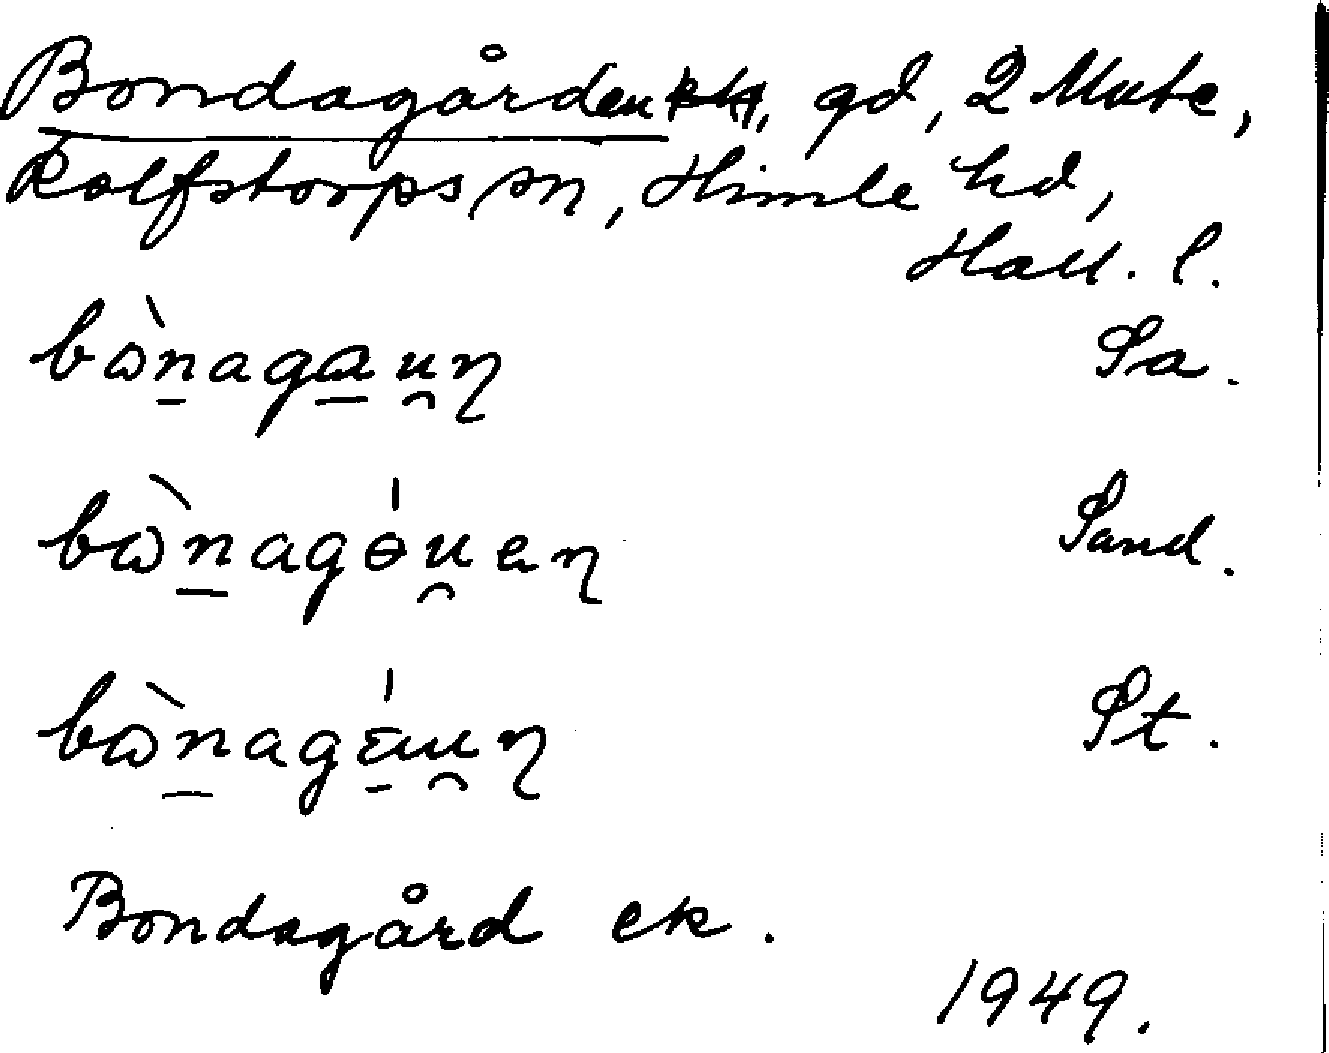 Bondagården, gd, 2 Mute,
Rolfstorps sn, Himle hd,
Hall. l.
bɷ̀n̠agau̯n̩ Sa.
bɷ̀n̠agɵ́u̯en̩ Sand.
bɷ̀n̠agáu̯n̩ St.
Bondagård ek.
1949.